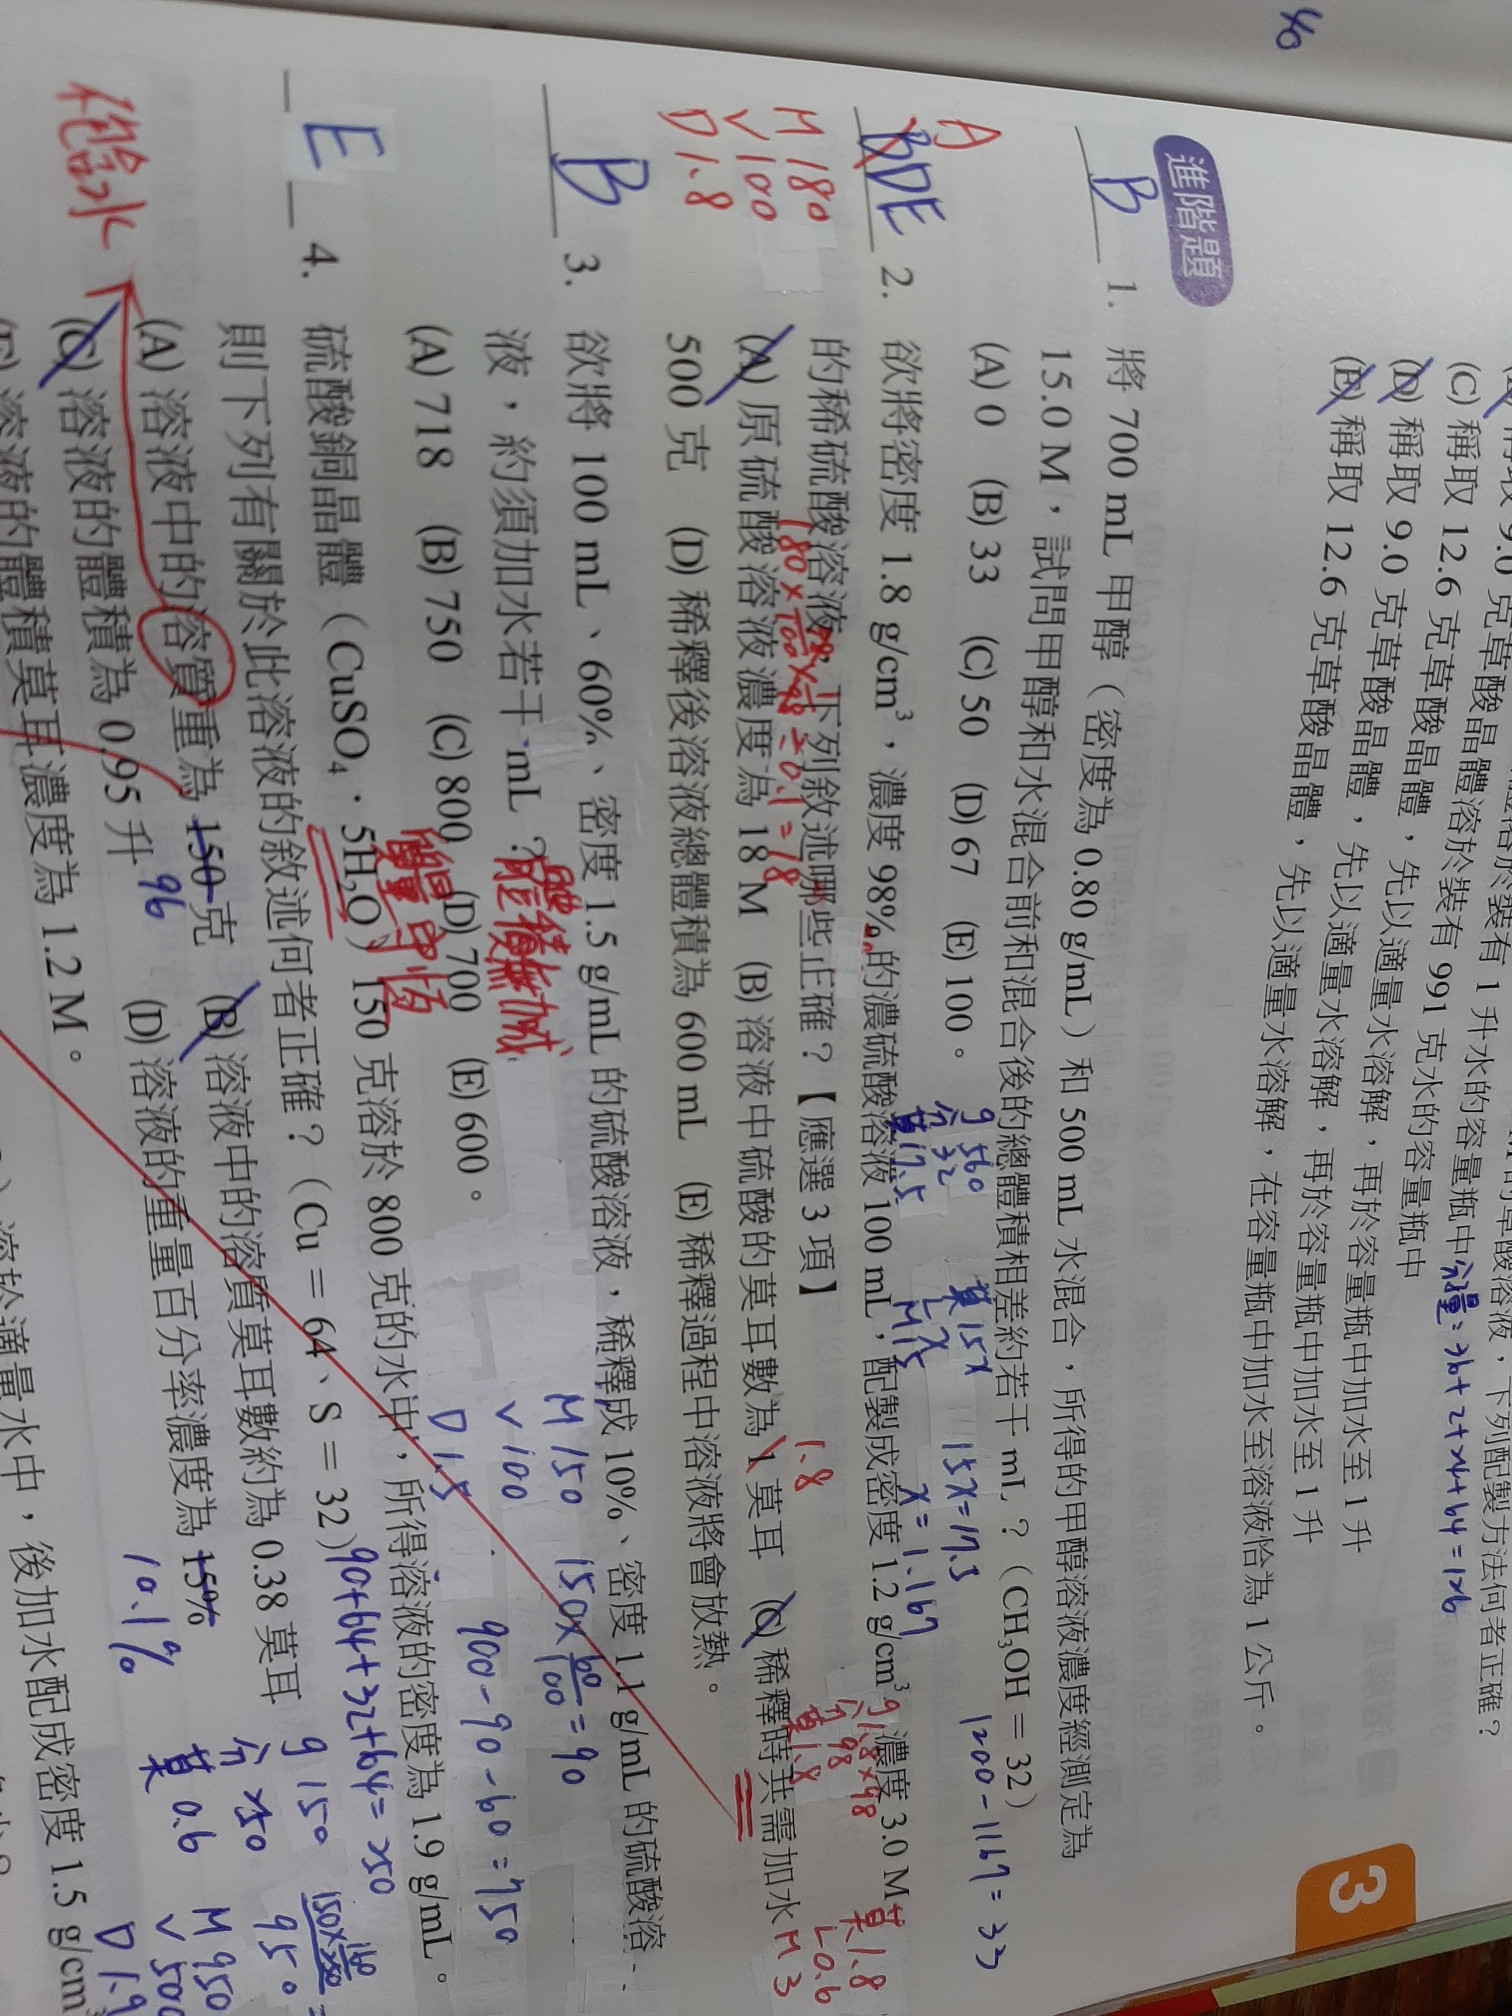 40
3
(C) 稱取 12.6 克草酸晶體溶於裝有 991 克水的容量瓶中
(D) 稱取 9.0 克草酸晶體，先以適量水溶解，再於容量瓶中加水至 1 升
(E) 稱取 12.6 克草酸晶體，先以適量水溶解，在容量瓶中加水至溶液恰為 1 公斤。
進階題
B 1. 將 700 mL 甲醇（密度為 0.80 g/mL）和 500 mL 水混合，所得的甲醇溶液濃度經測定為
15.0 M，試問甲醇和水混合前和混合後的總體積相差約若干 mL？（CH₃OH = 32）
(A) 0 (B) 33 (C) 50 (D) 67 (E) 100。
g 560
分 32
莫 17.5
莫 15x
L x
M 15
15x=17.5
x=1.167
1200-1167=33
A
BDE 2. 欲將密度 1.8 g/cm³，濃度 98% 的濃硫酸溶液 100 mL，配製成密度 1.2 g/cm³，濃度 3.0 M
的稀硫酸溶液，下列敘述哪些正確？【應選 3 項】
(A) 原硫酸溶液濃度為 18 M (B) 溶液中硫酸的莫耳數為 1 莫耳 (C) 稀釋時共需加水
500 克 (D) 稀釋後溶液總體積為 600 mL (E) 稀釋過程中溶液將會放熱。
M 180
V 100
D 1.8
1.8
g 1.8×98
分 98
莫 1.8
莫 1.8
L 0.6
M 3
B 3. 欲將 100 mL、60%、密度 1.5 g/mL 的硫酸溶液，稀釋成 10%、密度 1.1 g/mL 的硫酸溶
液，約須加水若干 mL？
(A) 718 (B) 750 (C) 800 (D) 700 (E) 600。
體積無加減
質量守恆
M 150
V 100
D 1.5
150×60/100=90
900-90-60=750
E 4. 硫酸銅晶體（CuSO₄．5H₂O）150 克溶於 800 克的水中，所得溶液的密度為 1.9 g/mL。
則下列有關於此溶液的敘述何者正確？（Cu = 64、S = 32）
(A) 溶液中的溶質重為 150 克 (B) 溶液中的溶質莫耳數約為 0.38 莫耳
(C) 溶液的體積為 0.95 升 (D) 溶液的重量百分率濃度為 15%
(E) 溶液的體積莫耳濃度為 1.2 M。
96
10.1%
90+64+32+64=250
g 150
分 250
莫 0.6
M 950
V 500
D 1.9